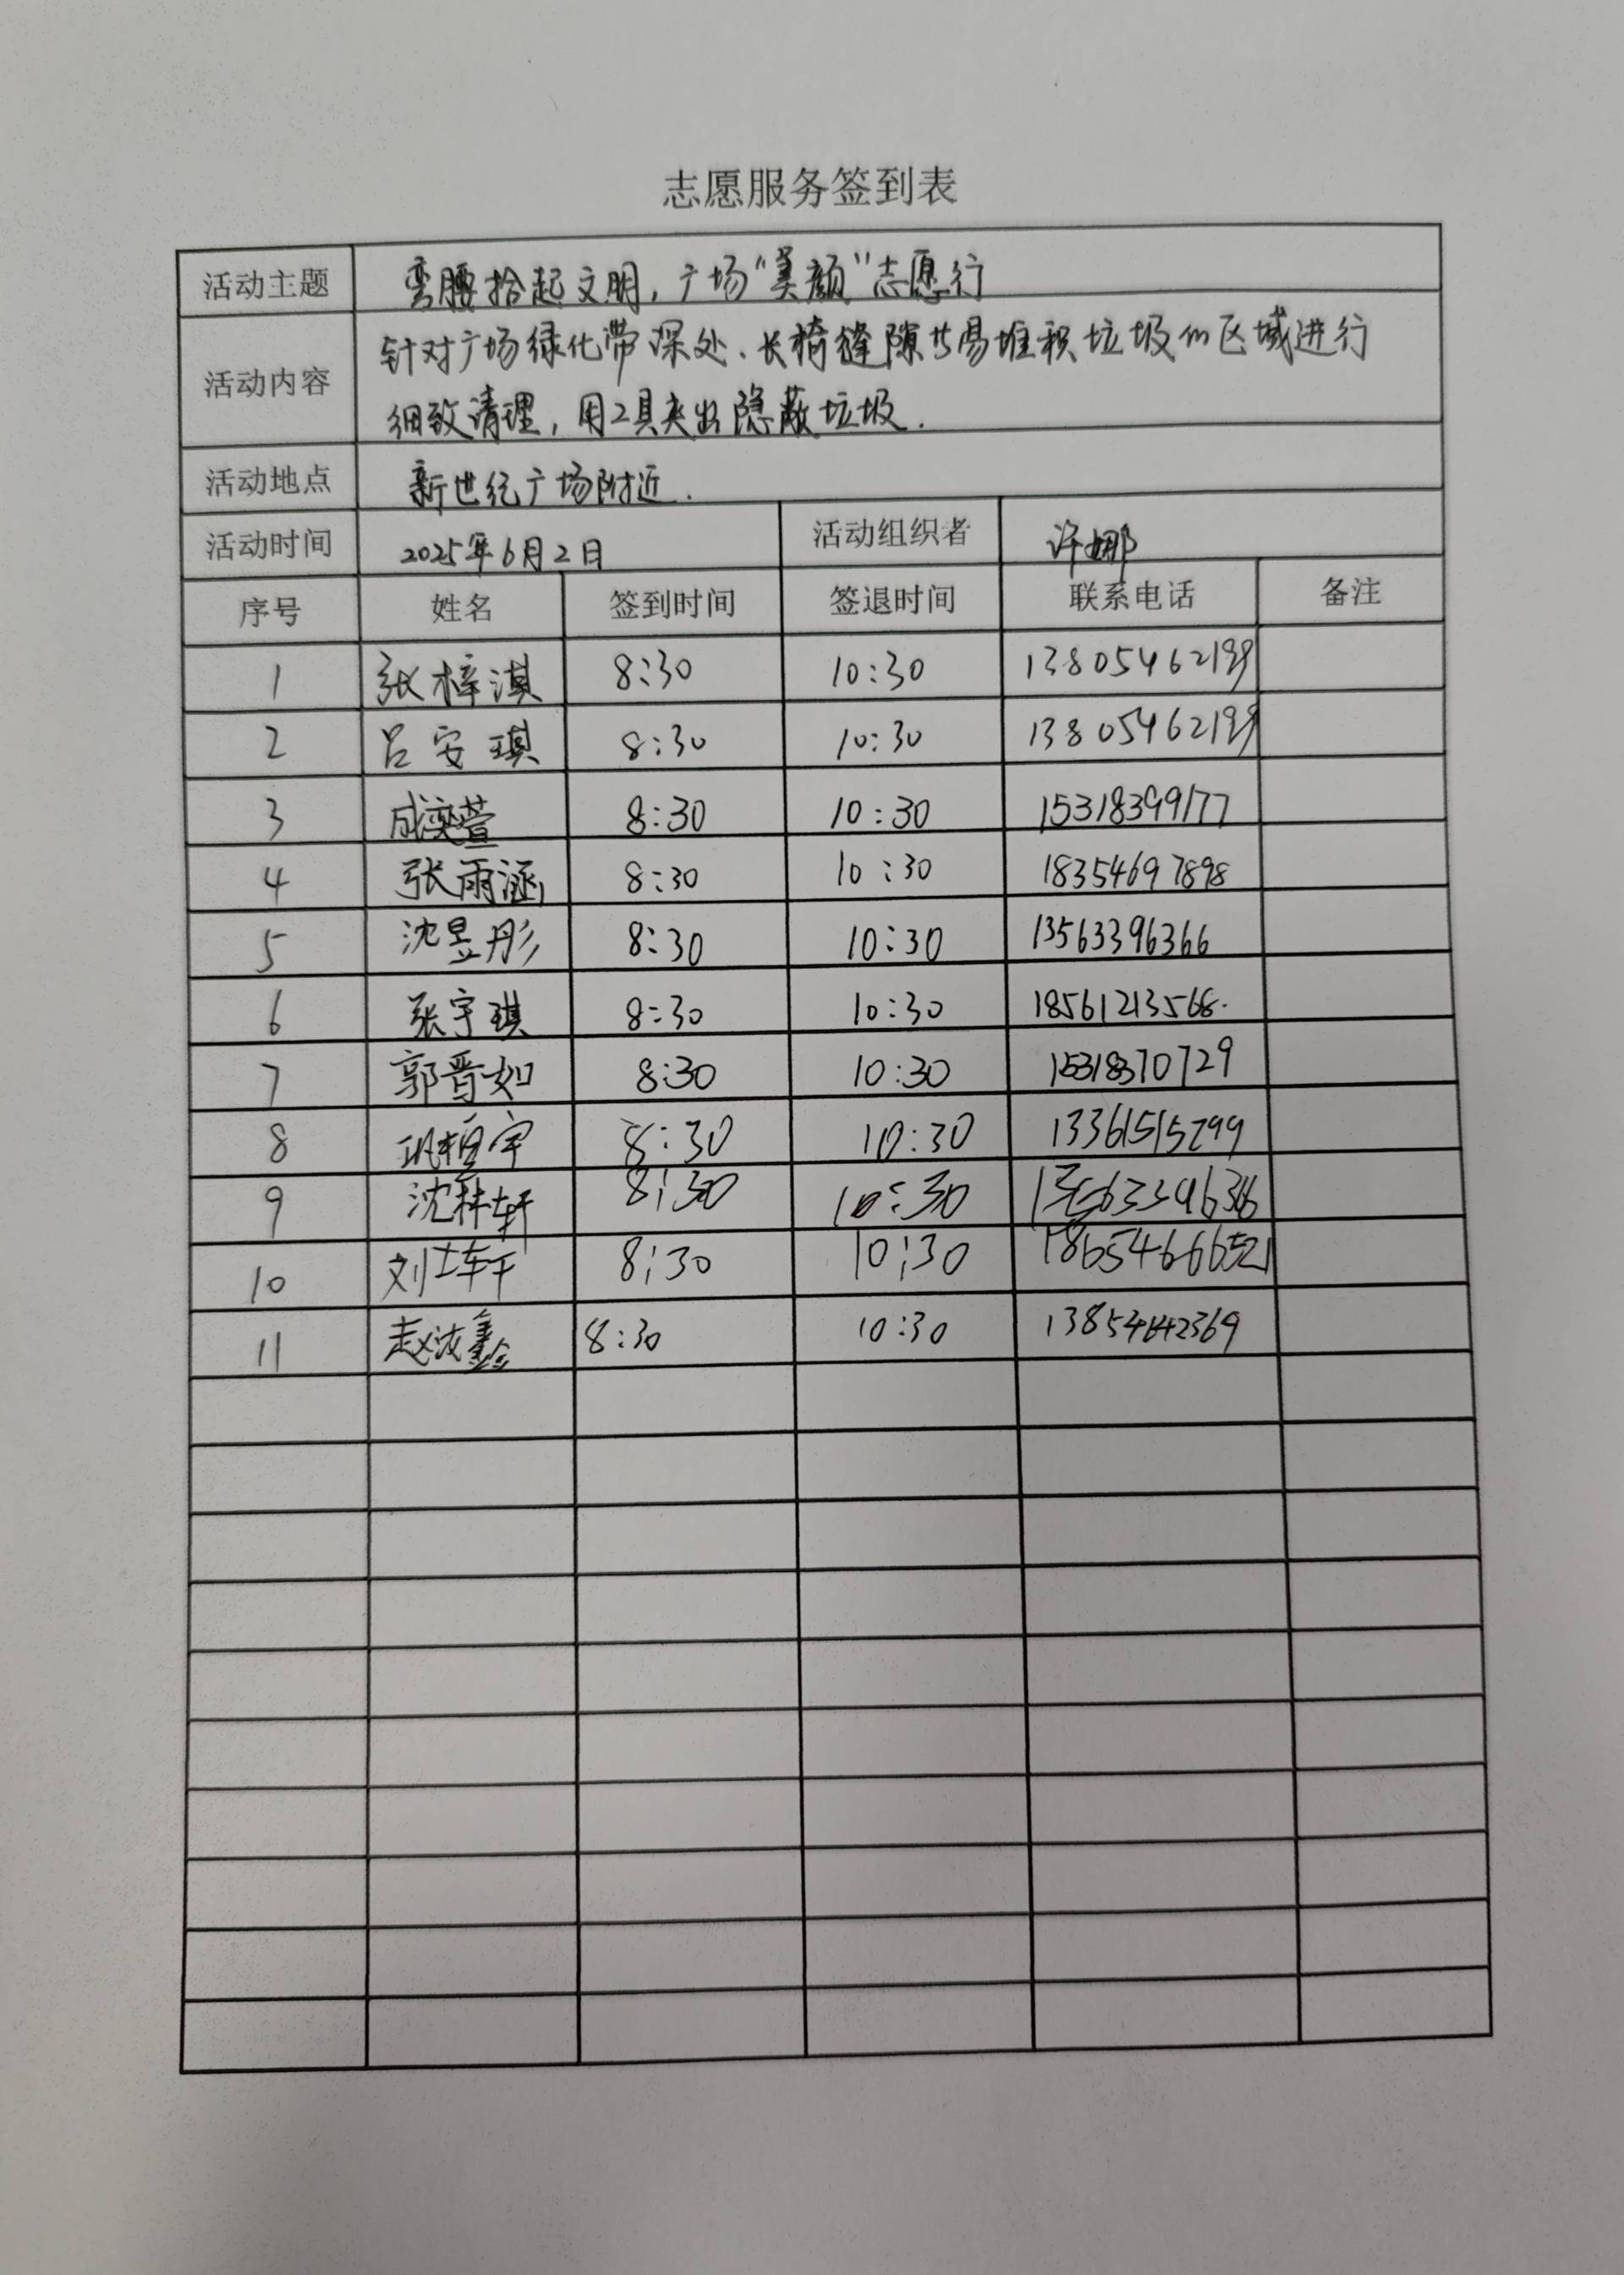 志愿服务签到表
活动主题 弯腰拾起文明，广场“美颜”志愿行
活动内容 针对广场绿化带深处、长椅缝隙等易堆积垃圾的区域进行
细致清理，用工具夹出隐蔽垃圾.
活动地点 新世纪广场附近.
活动时间 2025年6月2日 活动组织者 许娜
序号 姓名 签到时间 签退时间 联系电话 备注
1 张梓淇 8:30 10:30
2 吕安琪 8:30 10:30
3 成奕萱 8:30 10:30 15318399177
4 张雨涵 8:30 10:30 18354697898
5 沈昱彤 8:30 10:30 13563396366
6 张宇琪 8:30 10:30 18561213568.
7 郭晋如 8:30 10:30 15318370729
8 8:30 10:30 13361515299
9 8:30 10:30
10 刘士轩 8:30 10:30
11 8:30 10:30